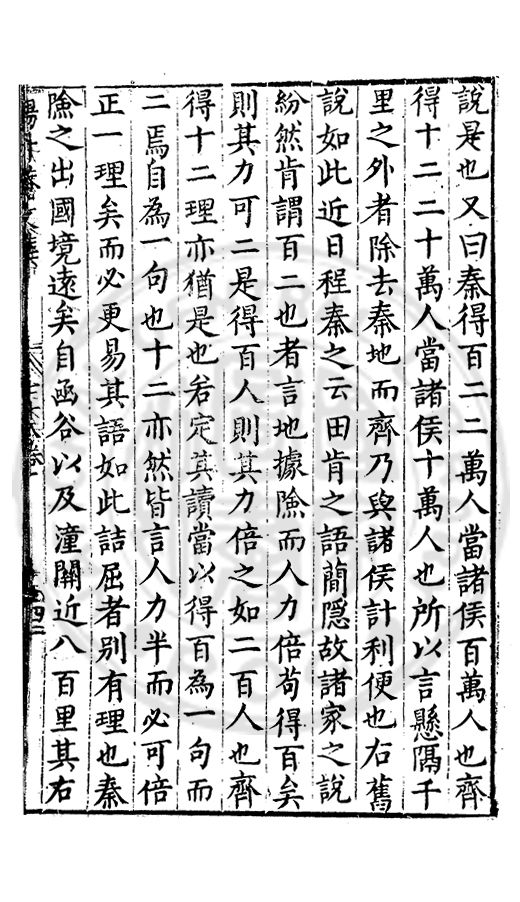 說是也又曰秦得百二二萬人當諸侯百萬人也齊
得十二二十萬人當諸侯十萬人也所以言懸隔千
里之外者除去秦地而齊乃與諸侯計利便也右舊
說如此近日程泰之云田肯之語蕳隱故諸家之說
紛然肯謂百二也者言地據險而人力倍苟得百矣
則其力可二是得百人則其力倍之如二百人也齊
得十二理亦猶是也若定其讀當以得百為一句而
二焉自為一句也十二亦然皆言人力半而必可倍
正一理矣而必更易其語如此詰屈者別有理也秦
險之出國境遠矣自函谷以及潼關近八百里其右